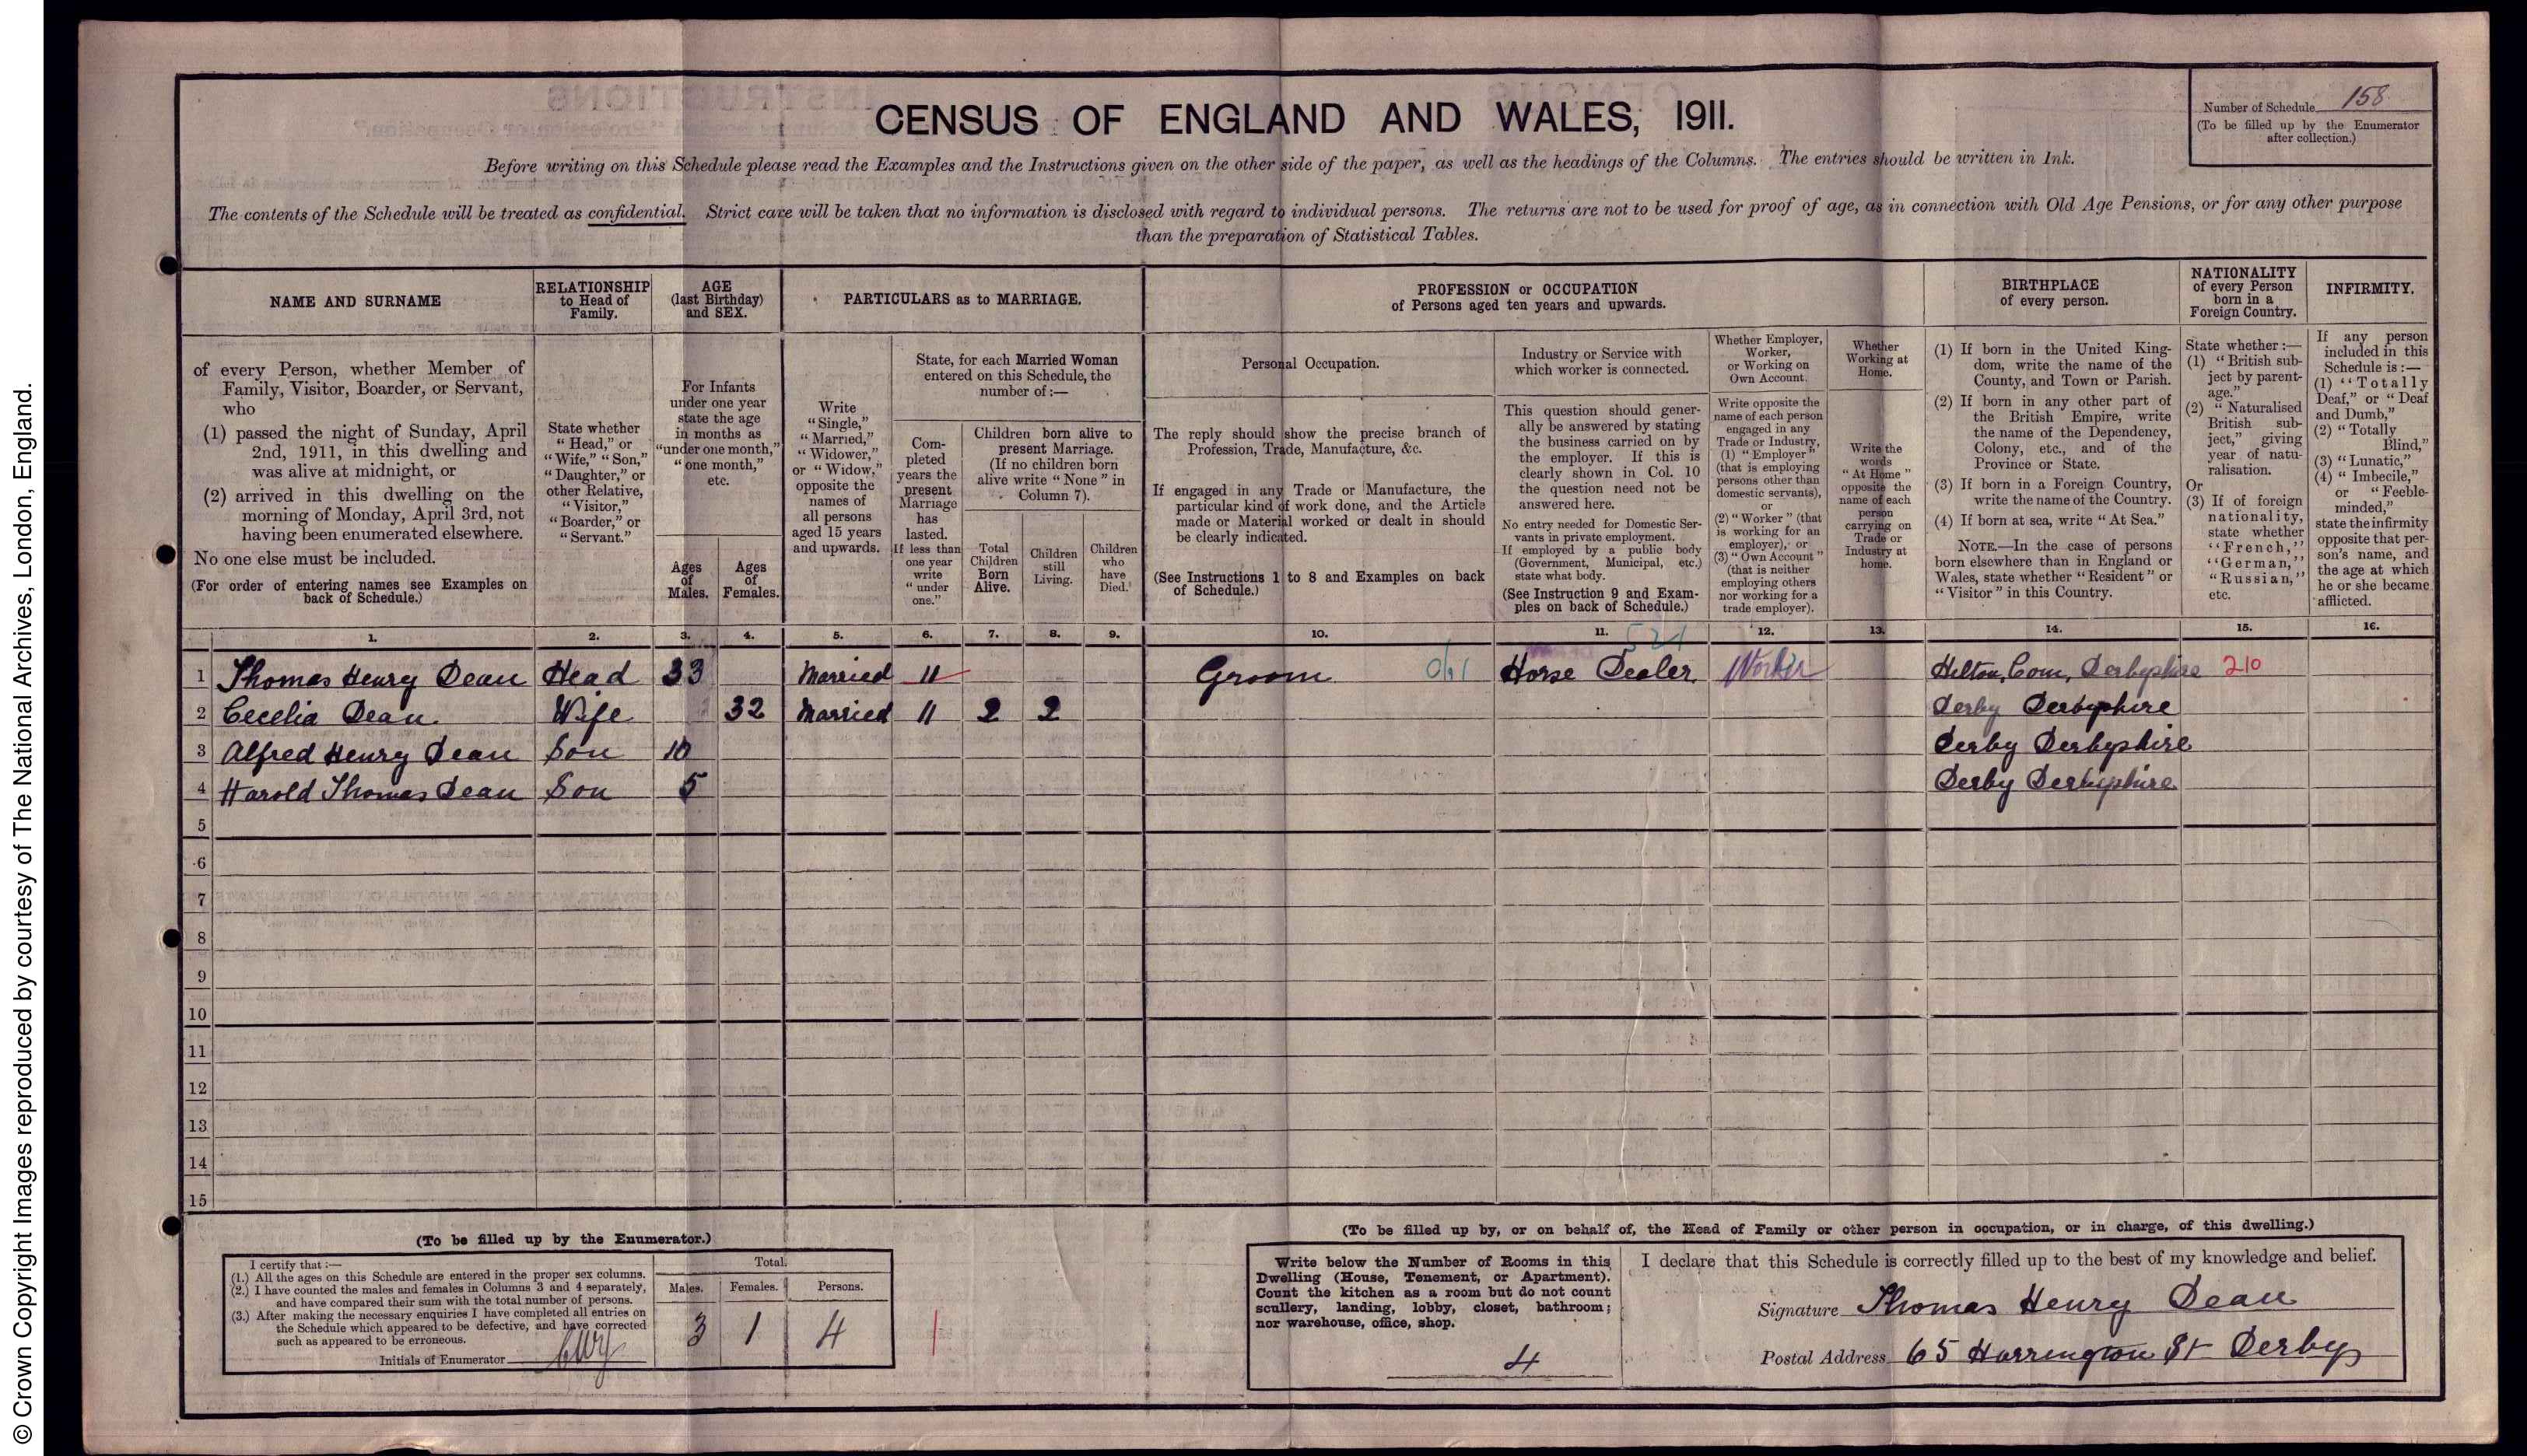 © Crown Copyright Images reproduced by courtesy of The National Archives, London, England.
CENSUS OF ENGLAND AND WALES, 1911.
Number of Schedule 158
(To be filled up by the Enumerator
after collection.)
Before writing on this Schedule please read the Examples and the Instructions given on the other side of the paper, as well as the headings of the Columns. The entries should be written in Ink.
The contents of the Schedule will be treated as confidential. Strict care will be taken that no information is disclosed with regard to individual persons. The returns are not to be used for proof of age, as in connection with Old Age Pensions, or for any other purpose
than the preparation of Statistical Tables.
NAME AND SURNAME
of every Person, whether Member of
Family, Visitor, Boarder, or Servant,
who
(1) passed the night of Sunday, April
2nd, 1911, in this dwelling and
was alive at midnight, or
(2) arrived in this dwelling on the
morning of Monday, April 3rd, not
having been enumerated elsewhere.
No one else must be included.
(For order of entering names see Examples on
back of Schedule.)
RELATIONSHIP
to Head of
Family.
State whether
"Head," or
"Wife," "Son,"
"Daughter," or
other Relative,
"Visitor,"
"Boarder," or
"Servant."
AGE
(last Birthday)
and SEX.
For Infants
under one year
state the age
in months as
"under one month,"
"one month,"
etc.
Ages
of
Males.
Ages
of
Females.
PARTICULARS as to MARRIAGE.
Write
"Single,"
"Married,"
"Widower,"
or "Widow,"
opposite the
names of
all persons
aged 15 years
and upwards.
State, for each Married Woman
entered on this Schedule, the
number of:—
Com-
pleted
years the
present
Marriage
has
lasted.
If less than
one year
write
"under
one."
Children born alive to
present Marriage.
(If no children born
alive write "None" in
Column 7).
Total
Children
Born
Alive.
Children
still
Living.
Children
who
have
Died.
PROFESSION or OCCUPATION
of Persons aged ten years and upwards.
Personal Occupation.
The reply should show the precise branch of
Profession, Trade, Manufacture, &c.
If engaged in any Trade or Manufacture, the
particular kind of work done, and the Article
made or Material worked or dealt in should
be clearly indicated.
(See Instructions 1 to 8 and Examples on back
of Schedule.)
Industry or Service with
which worker is connected.
This question should gener-
ally be answered by stating
the business carried on by
the employer. If this is
clearly shown in Col. 10
the question need not be
answered here.
No entry needed for Domestic Ser-
vants in private employment.
If employed by a public body
(Government, Municipal, etc.)
state what body.
(See Instruction 9 and Exam-
ples on back of Schedule.)
Whether Employer,
Worker,
or Working on
Own Account.
Write opposite the
name of each person
engaged in any
Trade or Industry,
(1) "Employer"
(that is employing
persons other than
domestic servants),
or
(2) "Worker" (that
is working for an
employer), or
(3) "Own Account"
(that is neither
employing others
nor working for a
trade employer).
Whether
Working at
Home.
Write the
words
"At Home"
opposite the
name of each
person
carrying on
Trade or
Industry at
home.
BIRTHPLACE
of every person.
(1) If born in the United King-
dom, write the name of the
County, and Town or Parish.
(2) If born in any other part of
the British Empire, write
the name of the Dependency,
Colony, etc., and of the
Province or State.
(3) If born in a Foreign Country,
write the name of the Country.
(4) If born at sea, write "At Sea."
NOTE.—In the case of persons
born elsewhere than in England or
Wales, state whether "Resident" or
"Visitor" in this Country.
NATIONALITY
of every Person
born in a
Foreign Country.
State whether:—
(1) "British sub-
ject by parent-
age."
(2) "Naturalised
British sub-
ject," giving
year of natu-
ralisation.
Or
(3) If of foreign
nationality,
state whether
"French,"
"German,"
"Russian,"
etc.
INFIRMITY.
If any person
included in this
Schedule is:—
(1) "Totally
Deaf," or "Deaf
and Dumb,"
(2) "Totally
Blind,"
(3) "Lunatic,"
(4) "Imbecile,"
or "Feeble-
minded,"
state the infirmity
opposite that per-
son's name, and
the age at which
he or she became
afflicted.
1. 2. 3. 4. 5. 6. 7. 8. 9. 10. 11. 12. 13. 14. 15. 16.
521
1 Thomas Henry Dean Head 33 Married 11 Groom Horse Dealer Worker Hilton, Derbyshire 210
2 Cecelia Dean Wife 32 Married 11 2 2 Derby Derbyshire
3 Alfred Henry Dean Son 10 Derby Derbyshire
4 Harold Thomas Dean Son 5 Derby Derbyshire
5
6
7
8
9
10
11
12
13
14
15
(To be filled up by the Enumerator.)
I certify that:—
(1.) All the ages on this Schedule are entered in the proper sex columns.
(2.) I have counted the males and females in Columns 3 and 4 separately,
and have compared their sum with the total number of persons.
(3.) After making the necessary enquiries I have completed all entries on
the Schedule which appeared to be defective, and have corrected
such as appeared to be erroneous.
Initials of Enumerator
Total.
Males. Females. Persons.
3 1 4
(To be filled up by, or on behalf of, the Head of Family or other person in occupation, or in charge, of this dwelling.)
Write below the Number of Rooms in this
Dwelling (House, Tenement, or Apartment).
Count the kitchen as a room but do not count
scullery, landing, lobby, closet, bathroom;
nor warehouse, office, shop.
4
I declare that this Schedule is correctly filled up to the best of my knowledge and belief.
Signature Thomas Henry Dean
Postal Address 65 Harrington St Derby